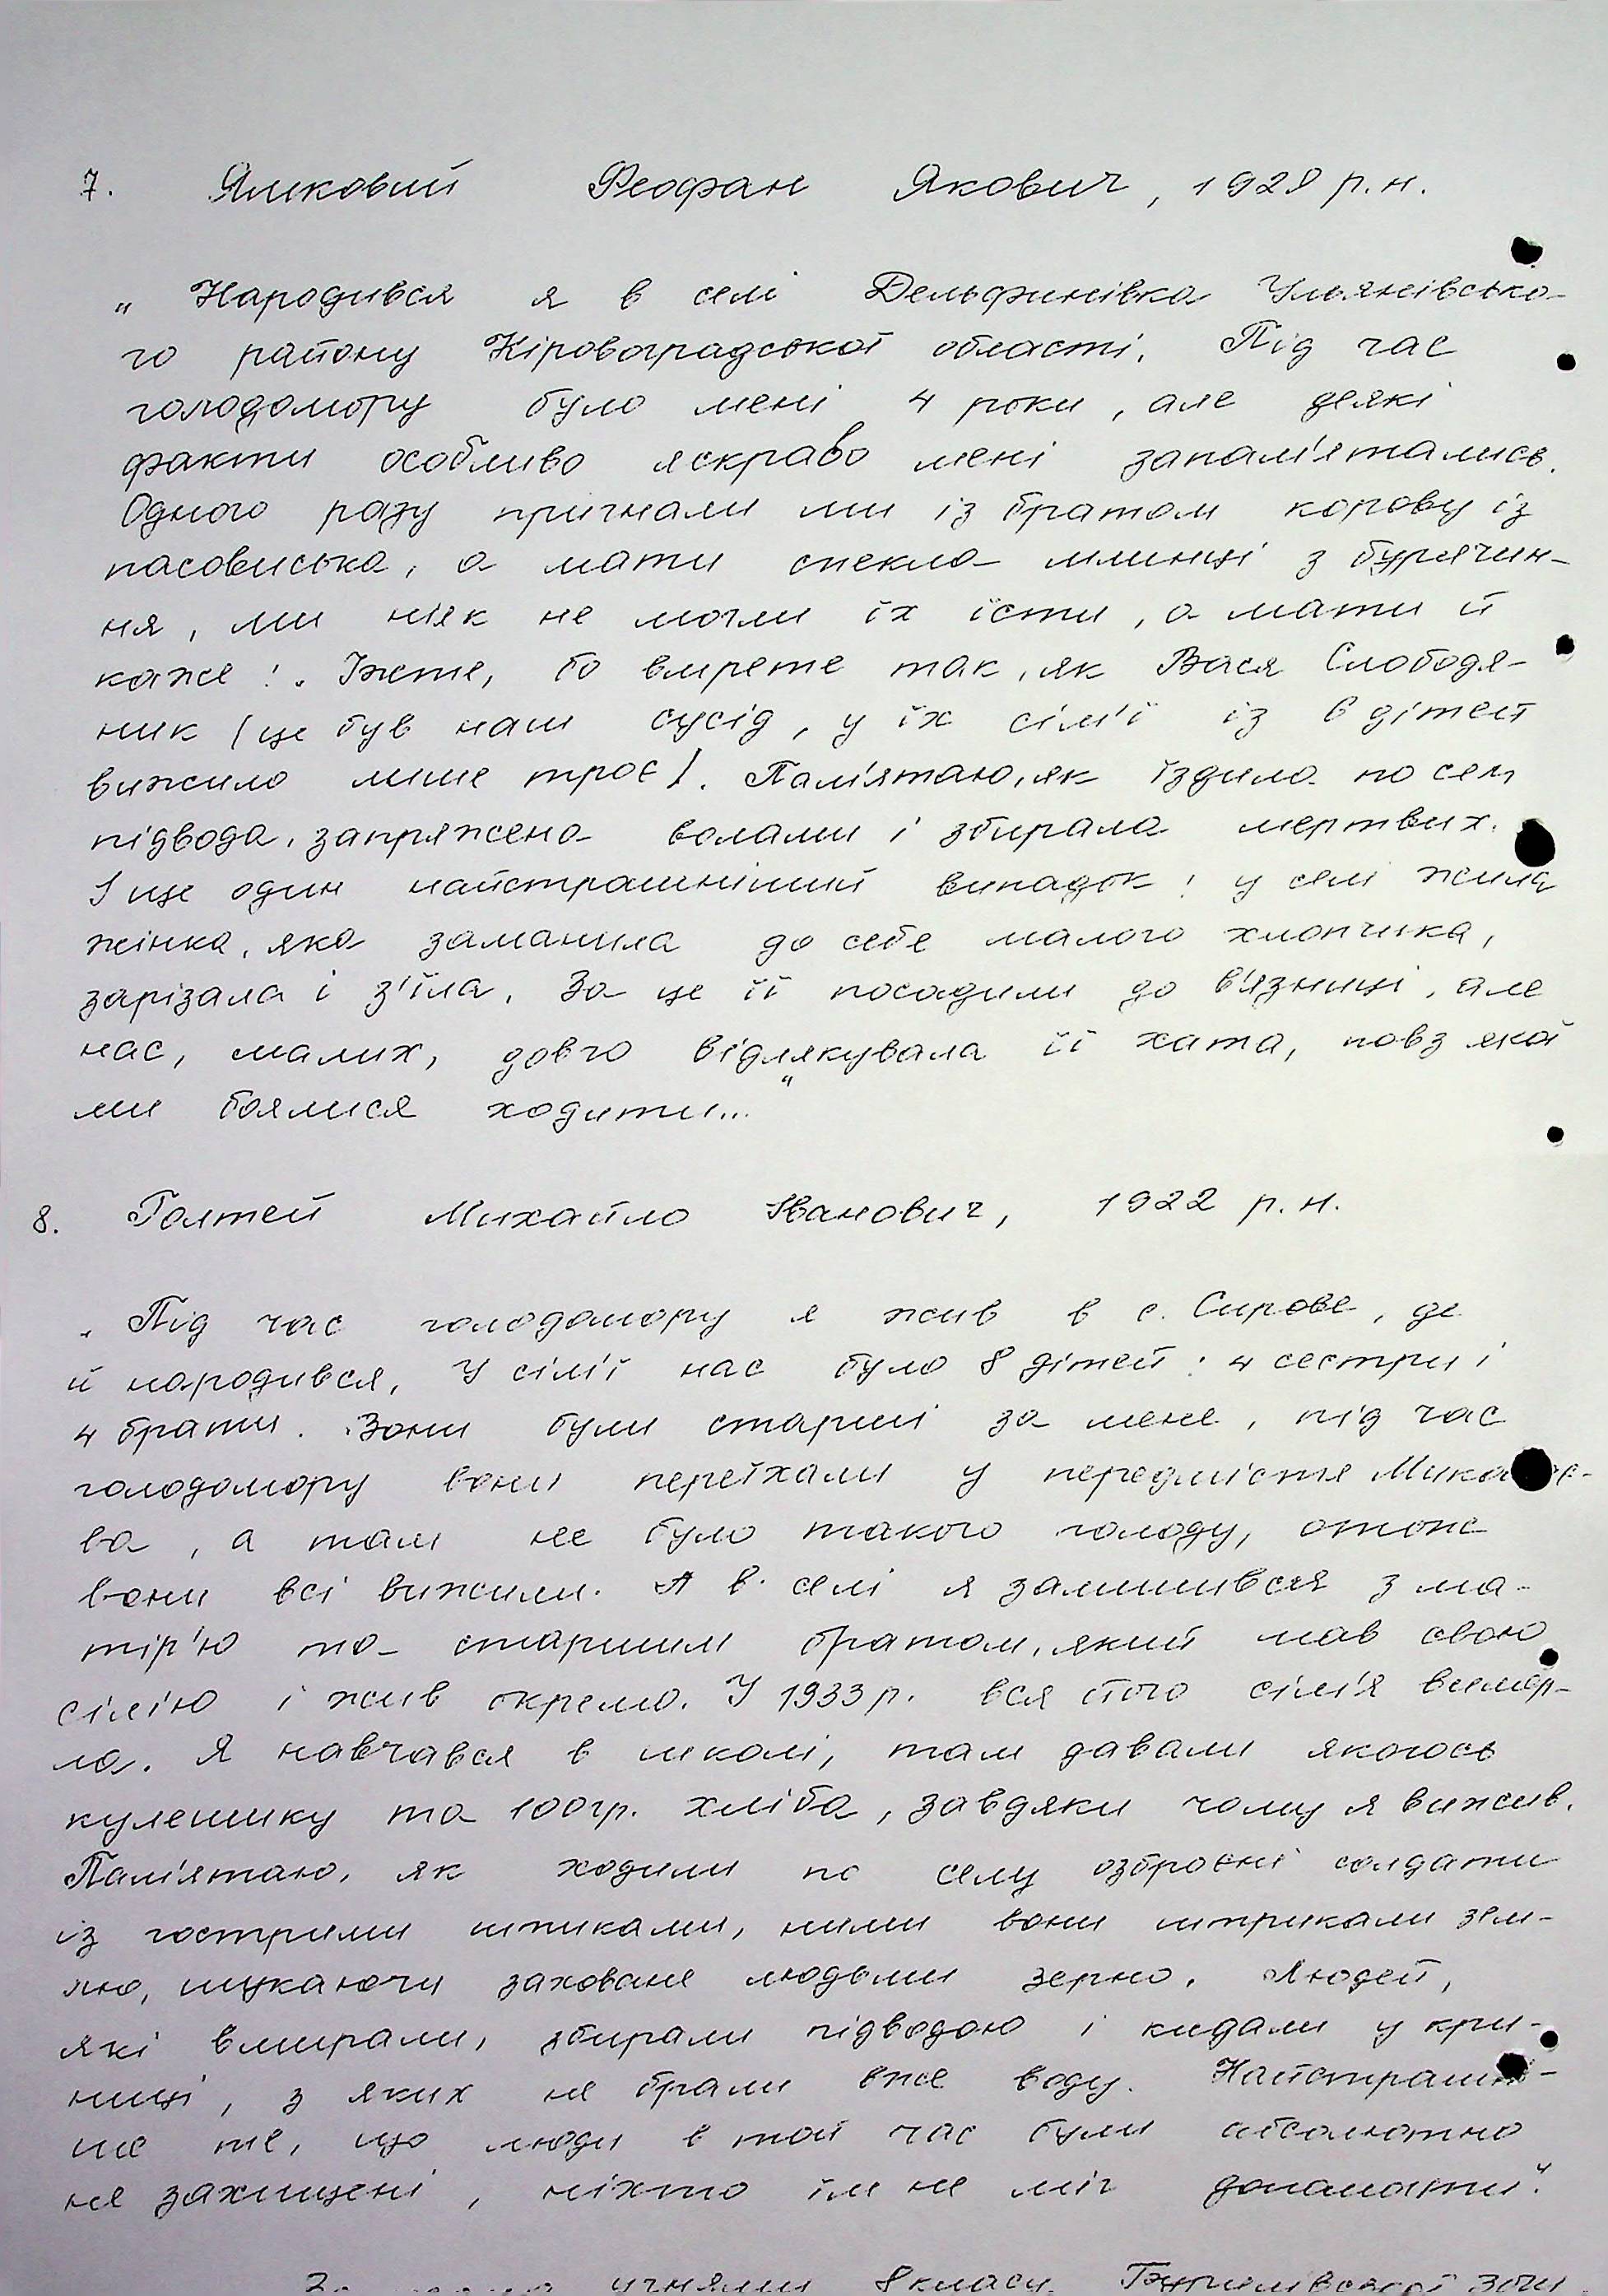 7. Ямковий Феофан Якович, 1928 р.н.
„ Народився я в селі Дельфинівка Ульянівсько-
го району Кіровоградської області. Під час
голодомору було мені 4 роки, але деякі
факти особливо яскраво мені запам'ятались.
Одного разу пригнали ми із братом корову із
пасовиська, а мати спекла млинці з бурячин-
ня, ми ніяк не могли їх їсти, а мати й
каже: „ Їжте, бо вмрете так, як Вася Слободя-
ник (це був наш сусід, у їх сім'ї із 6 дітей
вижило лише троє). Пам'ятаю, як їздила по селу
підвода, запряжена волами і збирала мертвих.
І ще один найстрашніший випадок: у селі жила
жінка, яка заманила до себе малого хлопчика,
зарізала і з'їла. За це її посадили до в'язниці, але
нас, малих, довго відлякувала її хата, повз якої
ми боялися ходити..."
8. Голтей Михайло Іванович, 1922 р.н.
„ Під час голодомору я жив в с. Сирове, де
й народився. У сім'ї нас було 8 дітей: 4 сестри і
4 брати. Вони були старші за мене, під час
голодомору вони переїхали у передмістя Миколає-
ва, а там не було такого голоду, отже
вони всі вижили. А в селі я залишився з ма-
тір'ю та старшим братом, який мав свою
сім'ю і жив окремо. У 1933 р. вся його сім'я вимер-
ла. Я навчався в школі, там давали якогось
кулешику та 100 гр. хліба, завдяки чому я вижив.
Пам'ятаю, як ходили по селу озброєні солдати
із гострими штиками, ними вони штрикали зем-
лю, шукаючи заховане людьми зерно. Людей,
які вмирали, збирали підводою і кидали у кри-
ниці, з яких не брали вже воду. Найстрашні-
ше те, що люди в той час були абсолютно
не захищені, ніхто їм не міг допомогти".
учнями 8 класу